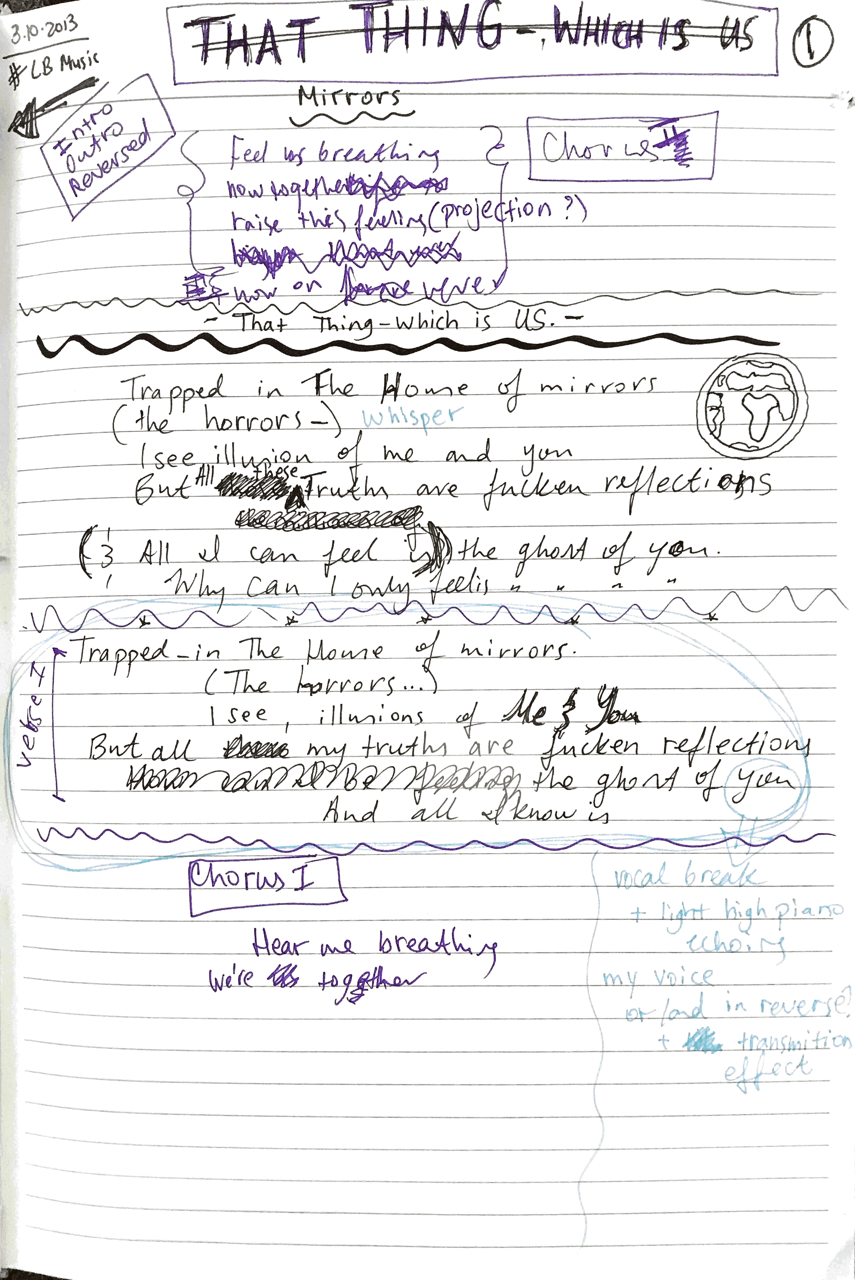 3.10.2013
# LB Music
THAT THING - WHICH IS US
1
Mirrors
Intro
Outro
Reversed
Feel us breathing
Chorus
now together
raise this feeling (projection?)
now on
- That Thing - which is US. -
Trapped in The House of mirrors
(the horrors -) whisper
I see illusion of me and you
But All these Truths are fucken reflections
(& All I can feel is) the ghost of you.
Why can I only feel is " " " "
Trapped - in The House of mirrors.
(The horrors...)
I see, illusions of Me & You
But all my truths are fucken reflections
the ghost of you
And all I know is
verse I
Chorus I
Hear me breathing
we're together
vocal break
+ light high piano
echoing
my voice
or/and in reverse?
+ transmition
effect